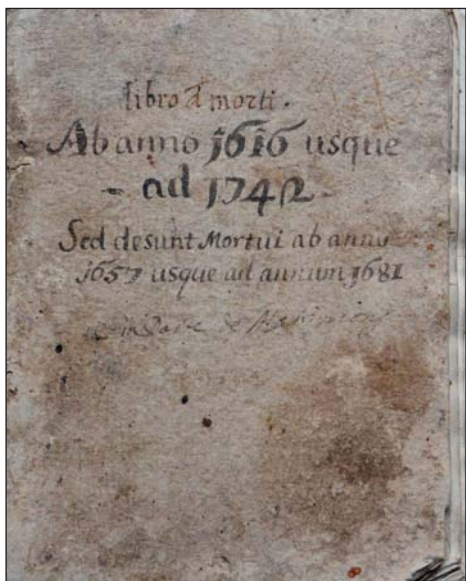 libro d morti.
Ab anno 1616 usque
- ad 1742 -
Sed desunt Mortui ab anno
1657 usque ad annum 1681
de